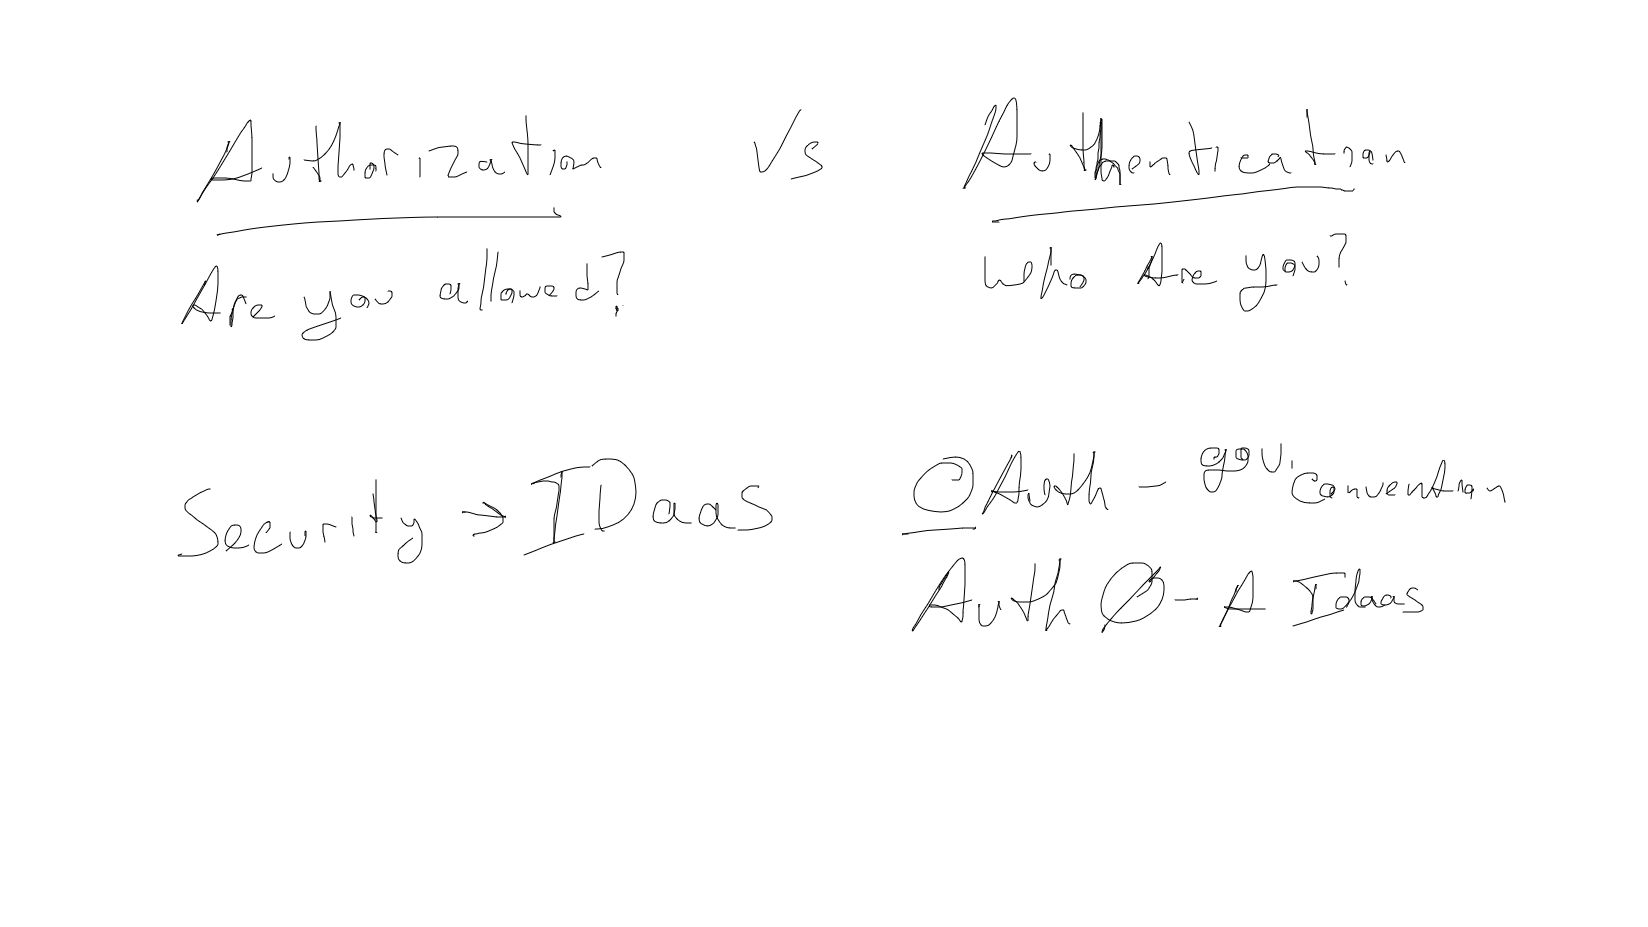 Authorization vs Authentication
Are you allowed? Who Are you?
Security → IDaas OAuth - gov. convention
Auth Ø - A Idaas